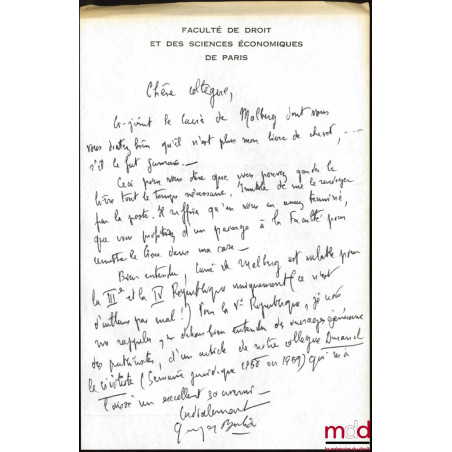 FACULTÉ DE DROIT
ET DES SCIENCES ÉCONOMIQUES
DE PARIS
Chère collègue,
Ci-joint le Carré de Malberg dont vous
vous doutez bien qu'il n'est plus mon livre de chevet, ...
s'il le fut jamais —
Ceci pour vous dire que vous pouvez garder le
livre tout le temps nécessaire. Inutile de me le renvoyer
par la poste. Il suffira qu'en vous en ayez terminé,
que vous profitiez d'un passage à la Faculté pour
remettre le livre dans ma case —
Bien entendu, Carré de Malberg est valable pour
la IIIe et la IV République uniquement (ce n'est
d'ailleurs pas mal !) Pour la Ve République, je
vous rappelle, en dehors bien entendu des ouvrages généraux
des publicistes, d'un article de notre collègue Durand
le civiliste (Semaine juridique 1958 ou 1959) qui m'a
laissé un excellent souvenir —
Cordialement
mdd
la mémoire du droit